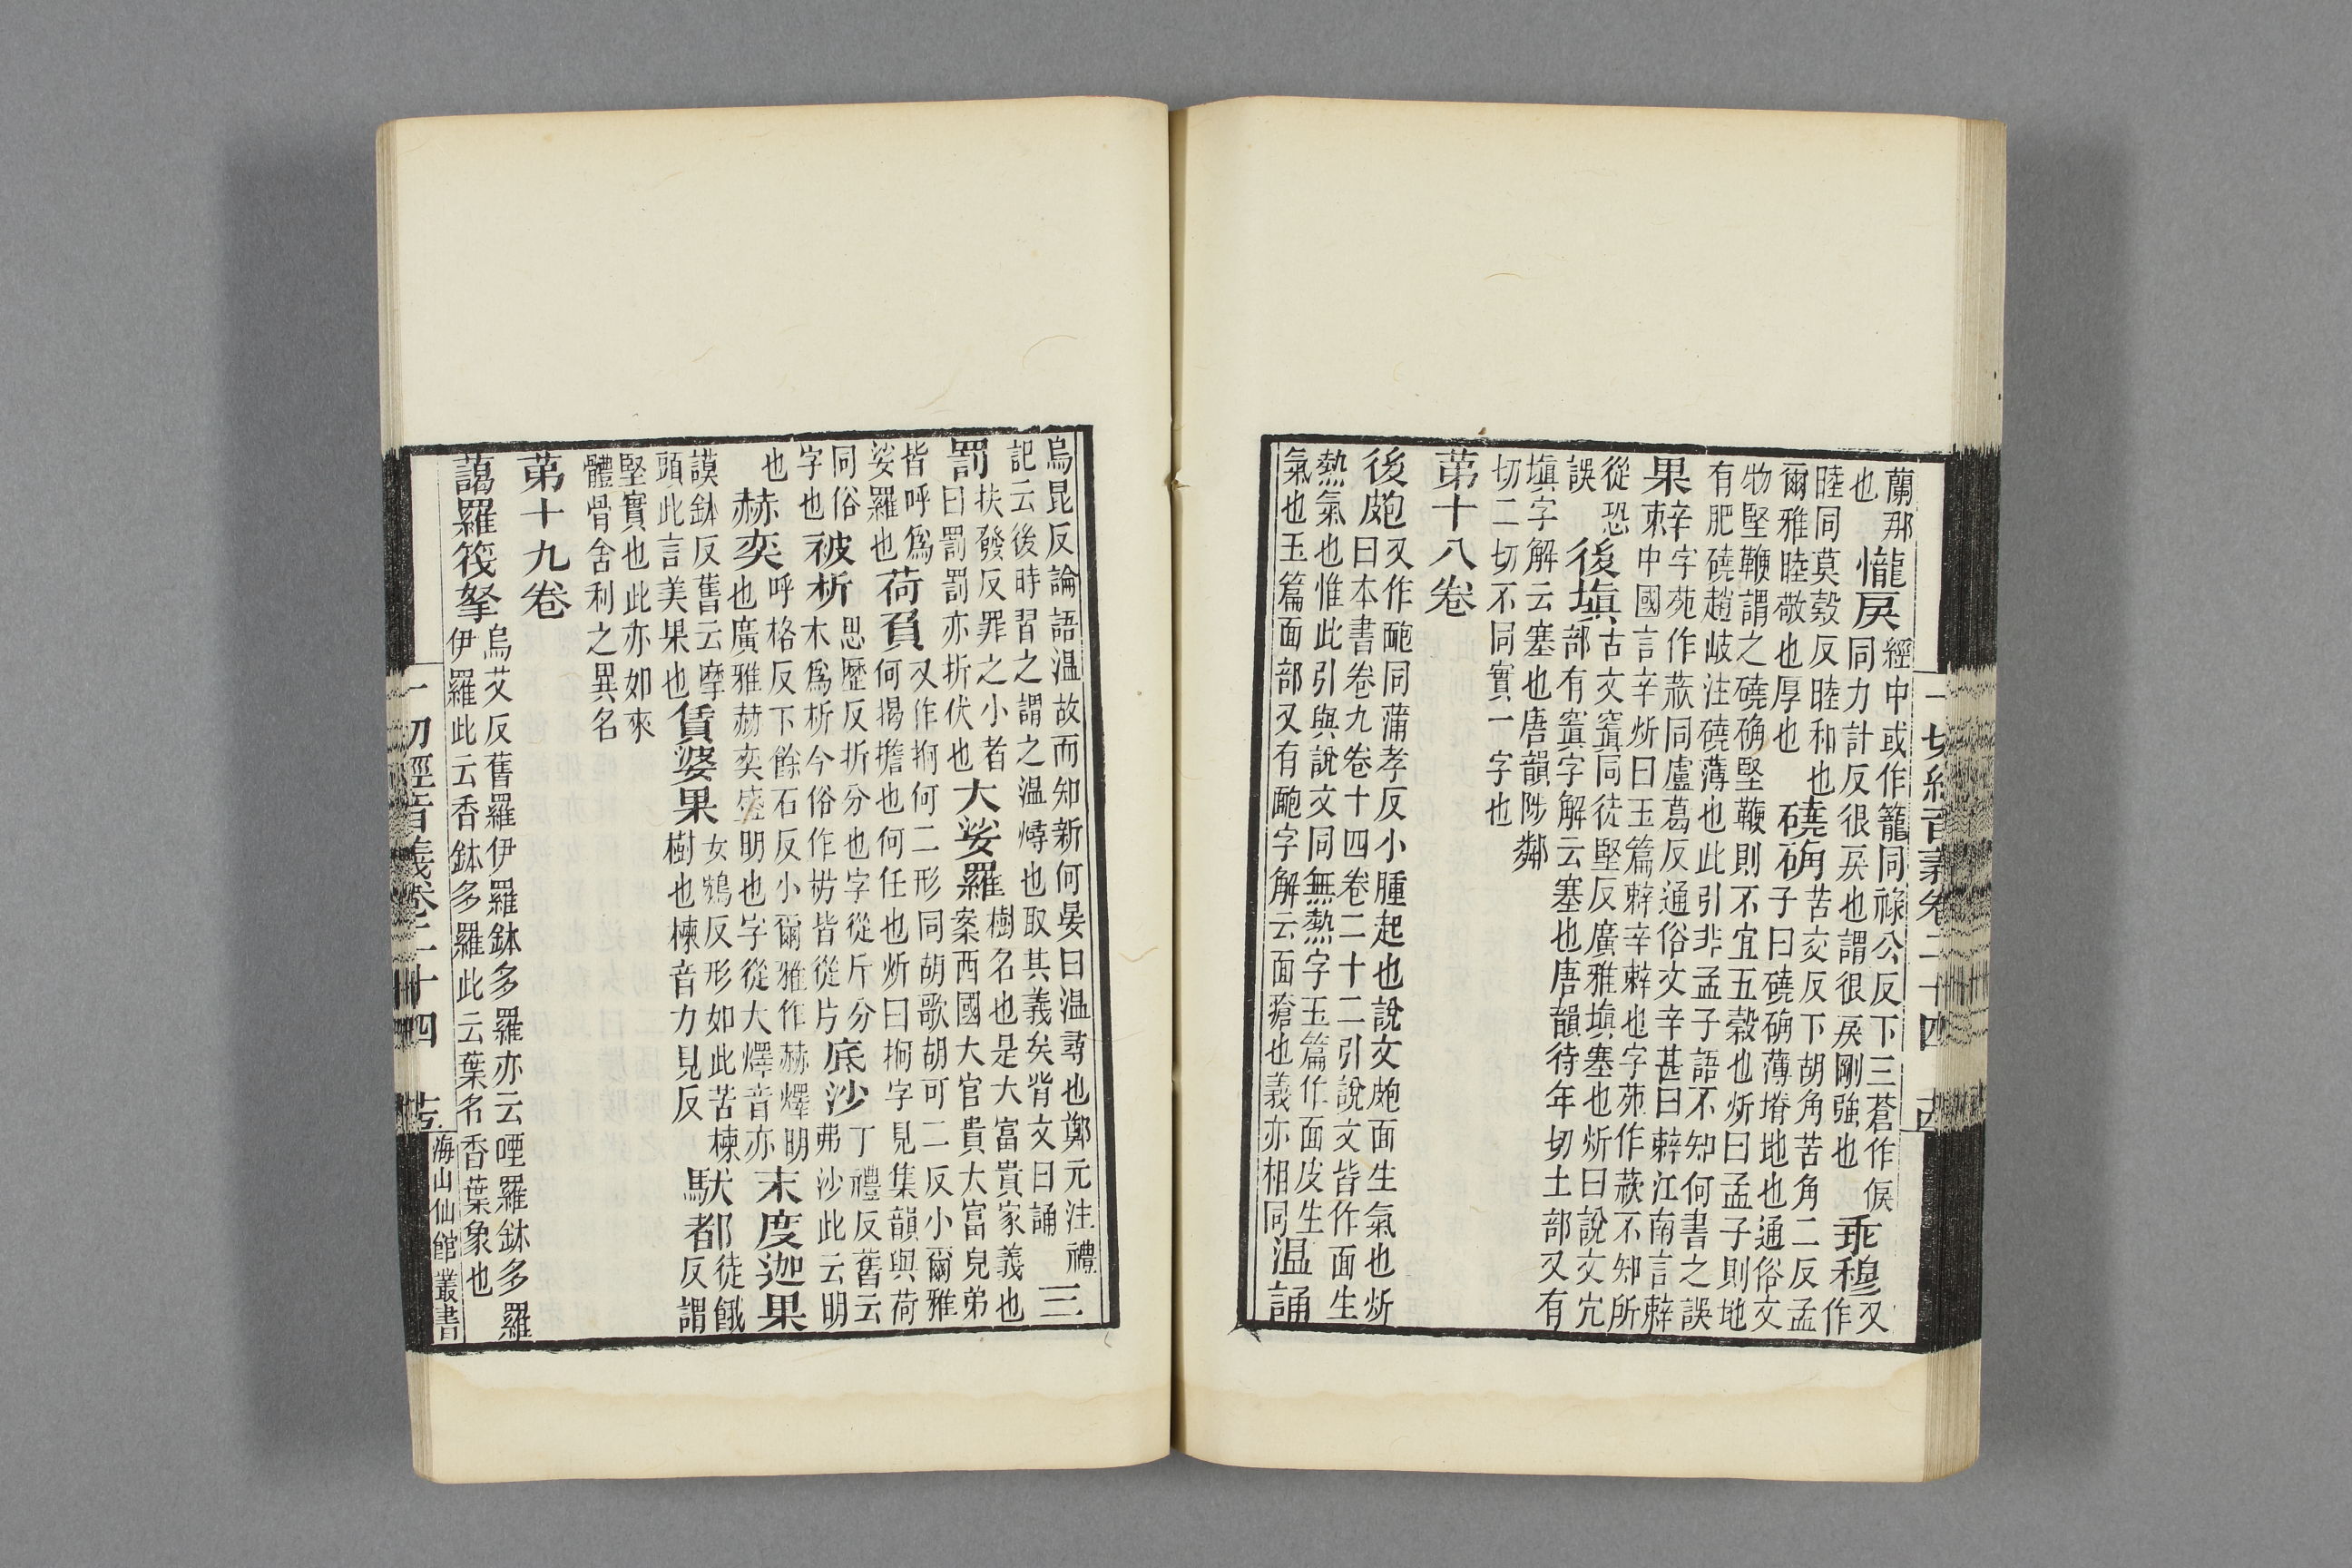 一切經音義卷二十四
蘭那
也
㦬戾
經中或作籠同祿公反下三蒼作㑦
同力計反很戾也謂很戾剛強也
乖穆
又
作
睦同莫㝅反睦和也
爾雅睦敬也厚也
磽确
苦交反下胡角苦角二反孟
子曰磽确薄塉地也通俗文
物堅鞕謂之磽确堅鞕則不宜五穀也炘曰孟子則地
有肥磽趙岐注磽薄也此引非孟子語不知何書之誤
果辢
字苑作蔌同盧葛反通俗文辛甚曰辢江南言辢
中國言辛炘曰玉篇辢辛辢也字苑作蔌不知所
從恐
誤
後塡
古文窴同徒堅反廣雅塡塞也炘曰說文穴
部有窴字解云塞也唐韻待年切土部又有
塡字解云塞也唐韻陟鄰
切二切不同實一字也
第十八卷
後皰
又作靤同蒲孝反小腫起也說文皰面生氣也炘
曰本書卷九卷十四卷二十二引說文皆作面生
熱氣也惟此引與說文同無熱字玉篇作面皮生
氣也玉篇面部又有靤字解云面瘡也義亦相同
温誦
烏昆反論語温故而知新何晏曰温尋也鄭元注禮
記云後時習之謂之温燖也取其義矣背文曰誦
三
罰
扶發反罪之小者
曰罰罰亦折伏也
大娑羅
樹名也是大富貴家義也
案西國大官貴大富兒弟
皆呼爲
娑羅也
荷負
又作抲何二形同胡歌胡可二反小爾雅
何揭擔也何任也炘曰抲字見集韻與荷
同俗
字也
被析
思歷反折分也字從斤分
木爲析今俗作㭊皆從片
底沙
丁禮反舊云
弗沙此云明
也
赫奕
呼格反下餘石反小爾雅作赫燡明
也廣雅赫奕盛明也字從大燡音亦
末度迦果
謨鉢反舊云摩
頭此言美果也
賃婆果
女鴆反形如此苦楝
樹也楝音力見反
馱都
徒餓
反謂
堅實也此亦如來
體骨舍利之異名
第十九卷
藹羅筏拏
烏艾反舊羅伊羅鉢多羅亦云咥羅鉢多羅
伊羅此云香鉢多羅此云葉名香葉象也
一切經音義卷二十四
海山仙館叢書